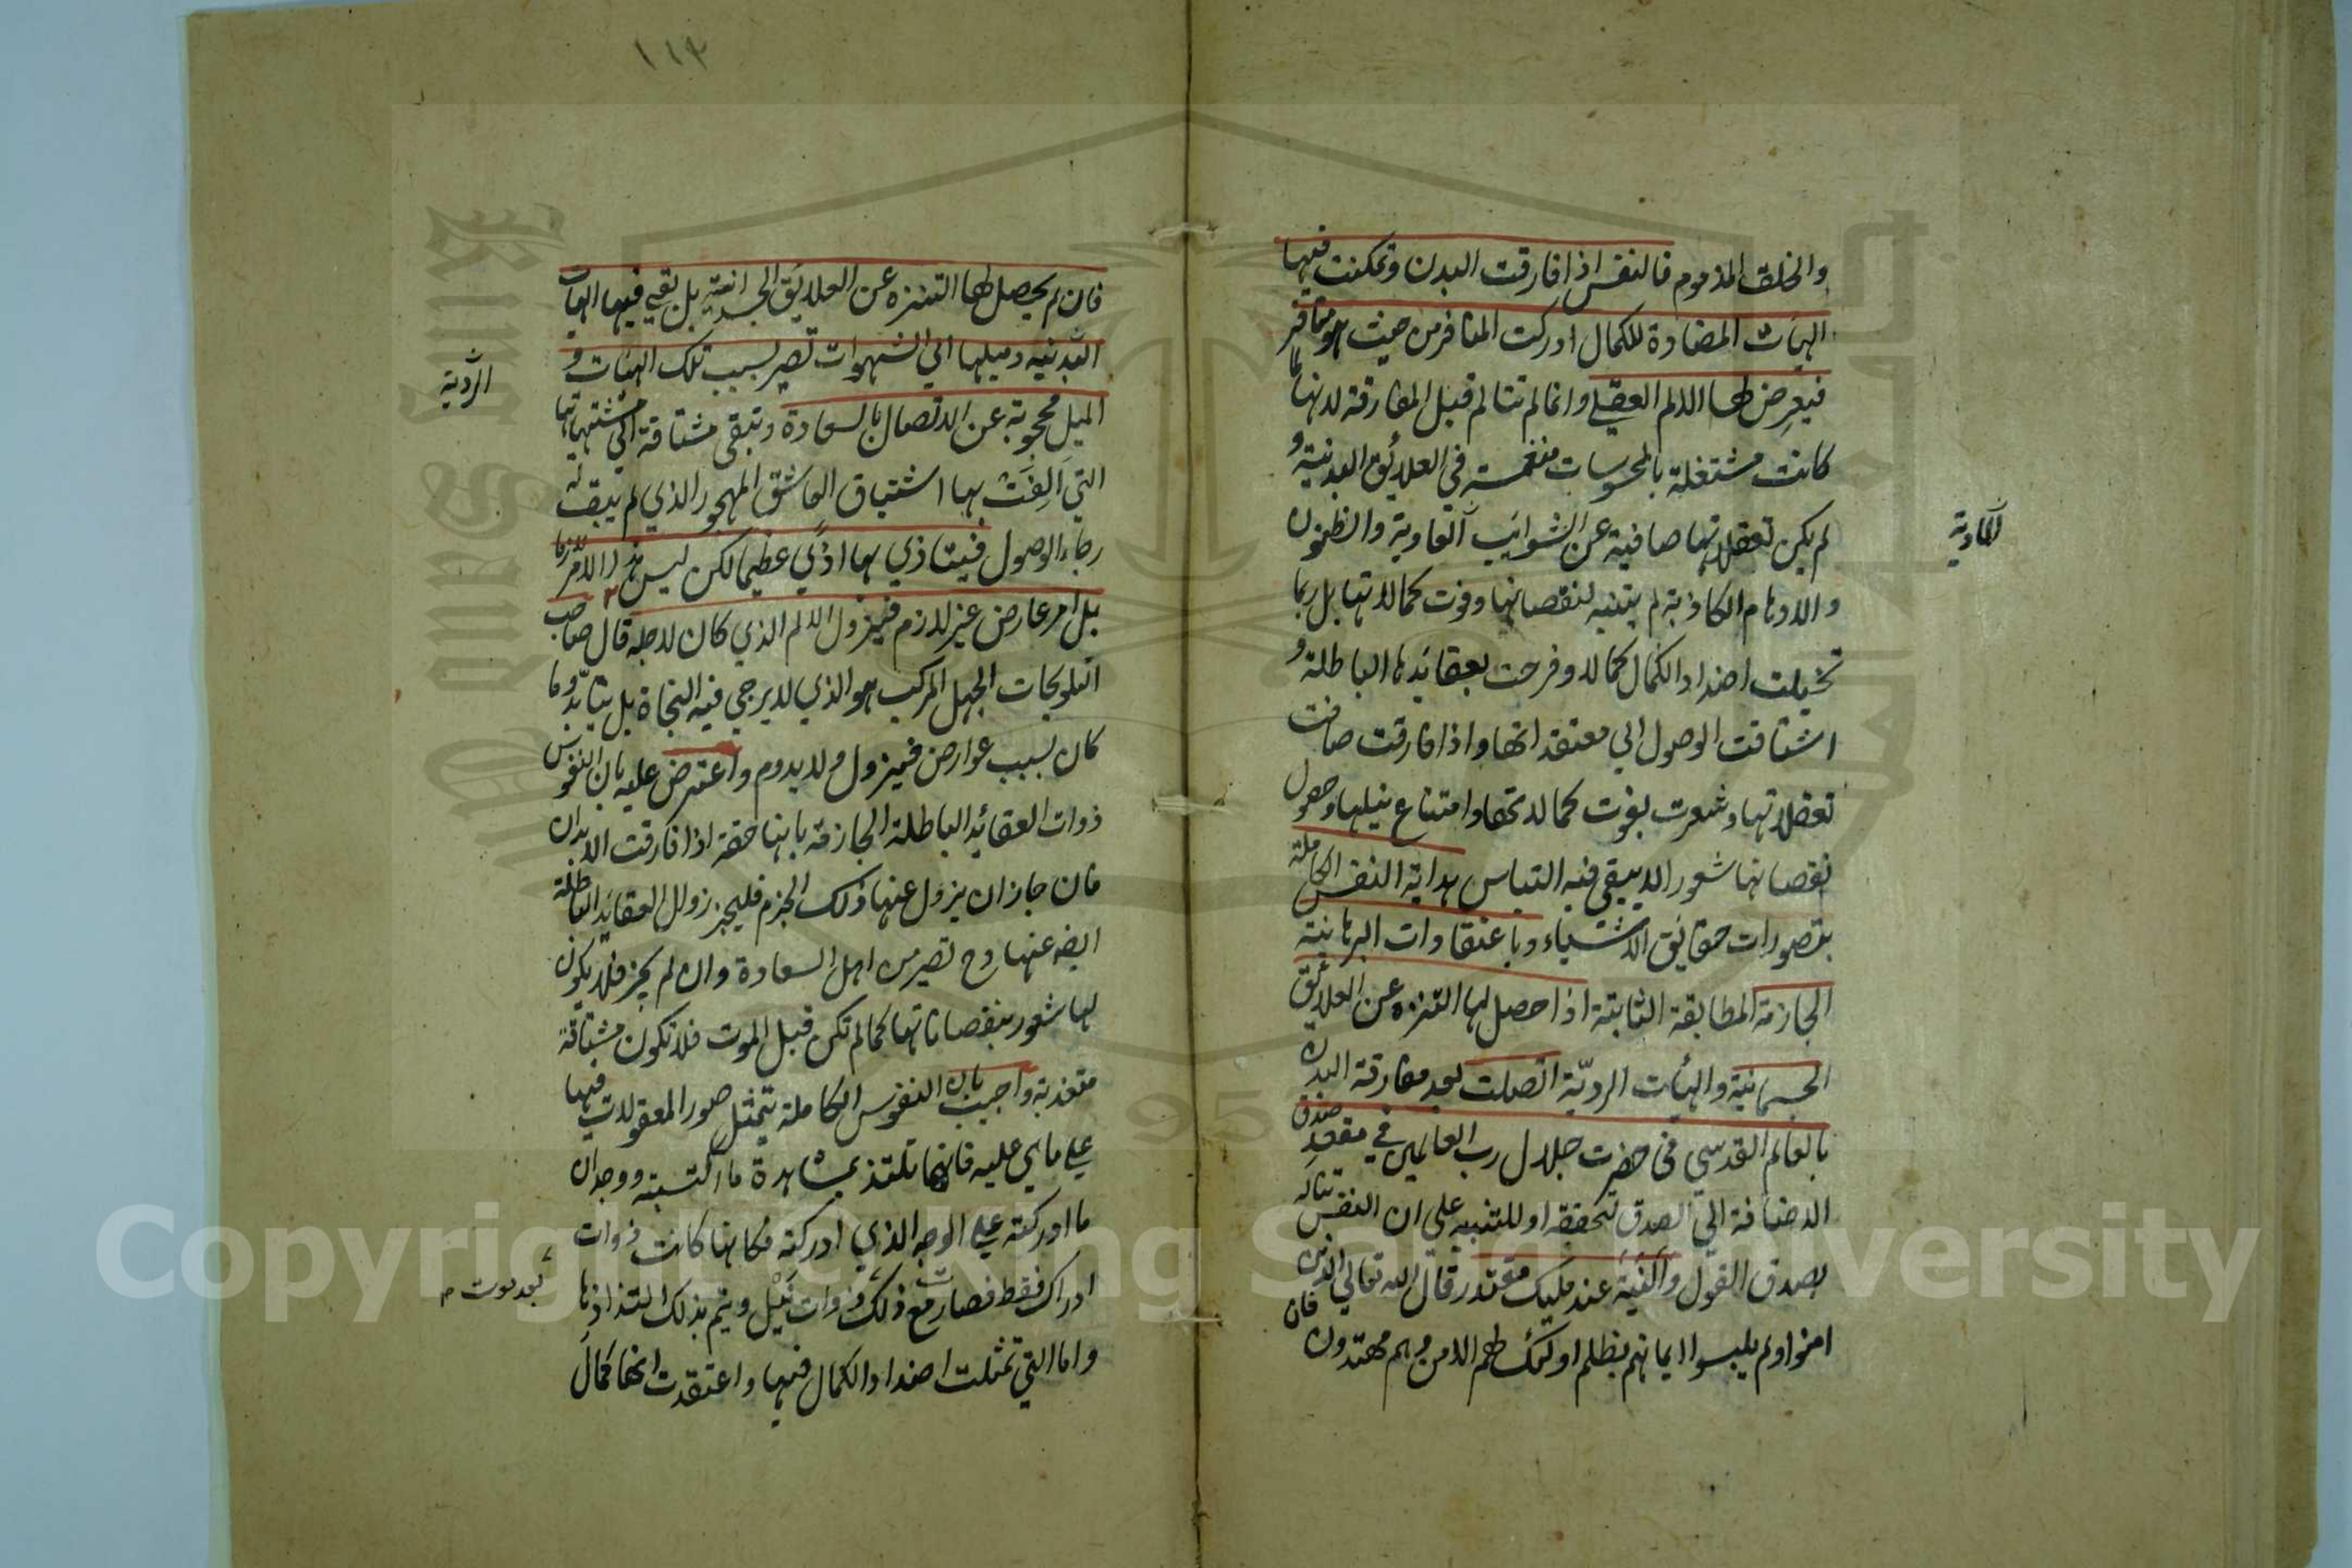 والخلق المذموم فالنفس اذا فارقت البدن وتمكنت فيها
الهيات المضادة للكمال ادركت المنافر من حيث هو منافر
فيعرض لها الالم العقلي وانما لم تتالم قبل المفارقة لانها لما
كانت مشتغلة بالمحسوسات منغمسة في العلائق البدنية و
لم يكن تعقلاتها صافية عن الشوائب العادية والظنون
المادية
والاوهام الكاذبة لم يتنبه لنقصانها وفوت كمالاتها بل ربما
تخيلت اضداد الكمال كمالا وفرحت بعقائدها الباطلة و
اشتاقت الوصول الي معتقداتها واذا فارقت صافت
تعقلاتها وشعرت بفوت كمالاتها وامتناع نيلها وحصول
نقصانها شعورا لا يبقي فيه التباس هداية النفس الكاملة
بتصورات حقايق الاشياء وباعتقادات البرهانية
الجازمة المطابقة الثابتة اذا حصل لها التنزه عن العلائق
الجسمانية والهيئات الرديّة اتصلت بعد مفارقة البدن
بالعالم القدسي في حضرت جلال رب العالمين في مقعد صدق
الاضافة الي الصدق لتحققه او للتنبيه علي ان النفس تناله
بصدق القول والنية عند مليك مقتدر قال الله تعالي الذين
امنوا ولم يلبسوا ايمانهم بظلم اولئك لهم الامن وهم مهتدون
فان
١١٣
فان لم يحصل لها التنزه عن العلايق الجسمانية بل بقي فيها الهيات
البدنية وميلها الي الشهوات تصير بسبب تلك الهيات و
الردية
الميل محجوبة عن الاتصال بالسعادة وتبقي مشتاقة الي مشتهياتها
التي الفت بها اشتياق العاشق المهجور الذي لم يبق له
رجاء الوصول فيتاذي بها اذي عظيما لكن ليس هذا الامر لازما
بل امر عارض غير لازم فيزول الالم الذي كان لاجله قال صاحب
التلويحات الجهل المركب هو الذي لا يرجي فيه النجاة بل يتابّد وما
كان بسبب عوارض فيزول ولا يدوم واعترض عليه بان النفوس
ذوات العقائد الباطلة الجازمة بانها حقة اذا فارقت الابدان
فان جاز ان يزول عنها ذلك الجزم فليجز زوال العقائد الباطلة
ايضه عنها وح تصير من اهل السعادة وان لم يجز فلا يكون
لها شعور بنقصاناتها كما لم تكن قبل الموت فلا تكون مشتاقة
متعذبة واجيب بان النفوس الكاملة يتمثل صور المعقولات فيها
علي ما هي عليه فانها تلتذ بمشاهدة ما اكتسبته ووجدان
ما ادركته علي الوجه الذي ادركته فكانها كانت ذوات
ادراك فقط فصارت مع ذلك ذوات نيل ويتم بذلك التذاذها
بعد موت
واما التي تمثلت اضداد الكمال فيها واعتقدت انها كمال
Copyright © King Saud University